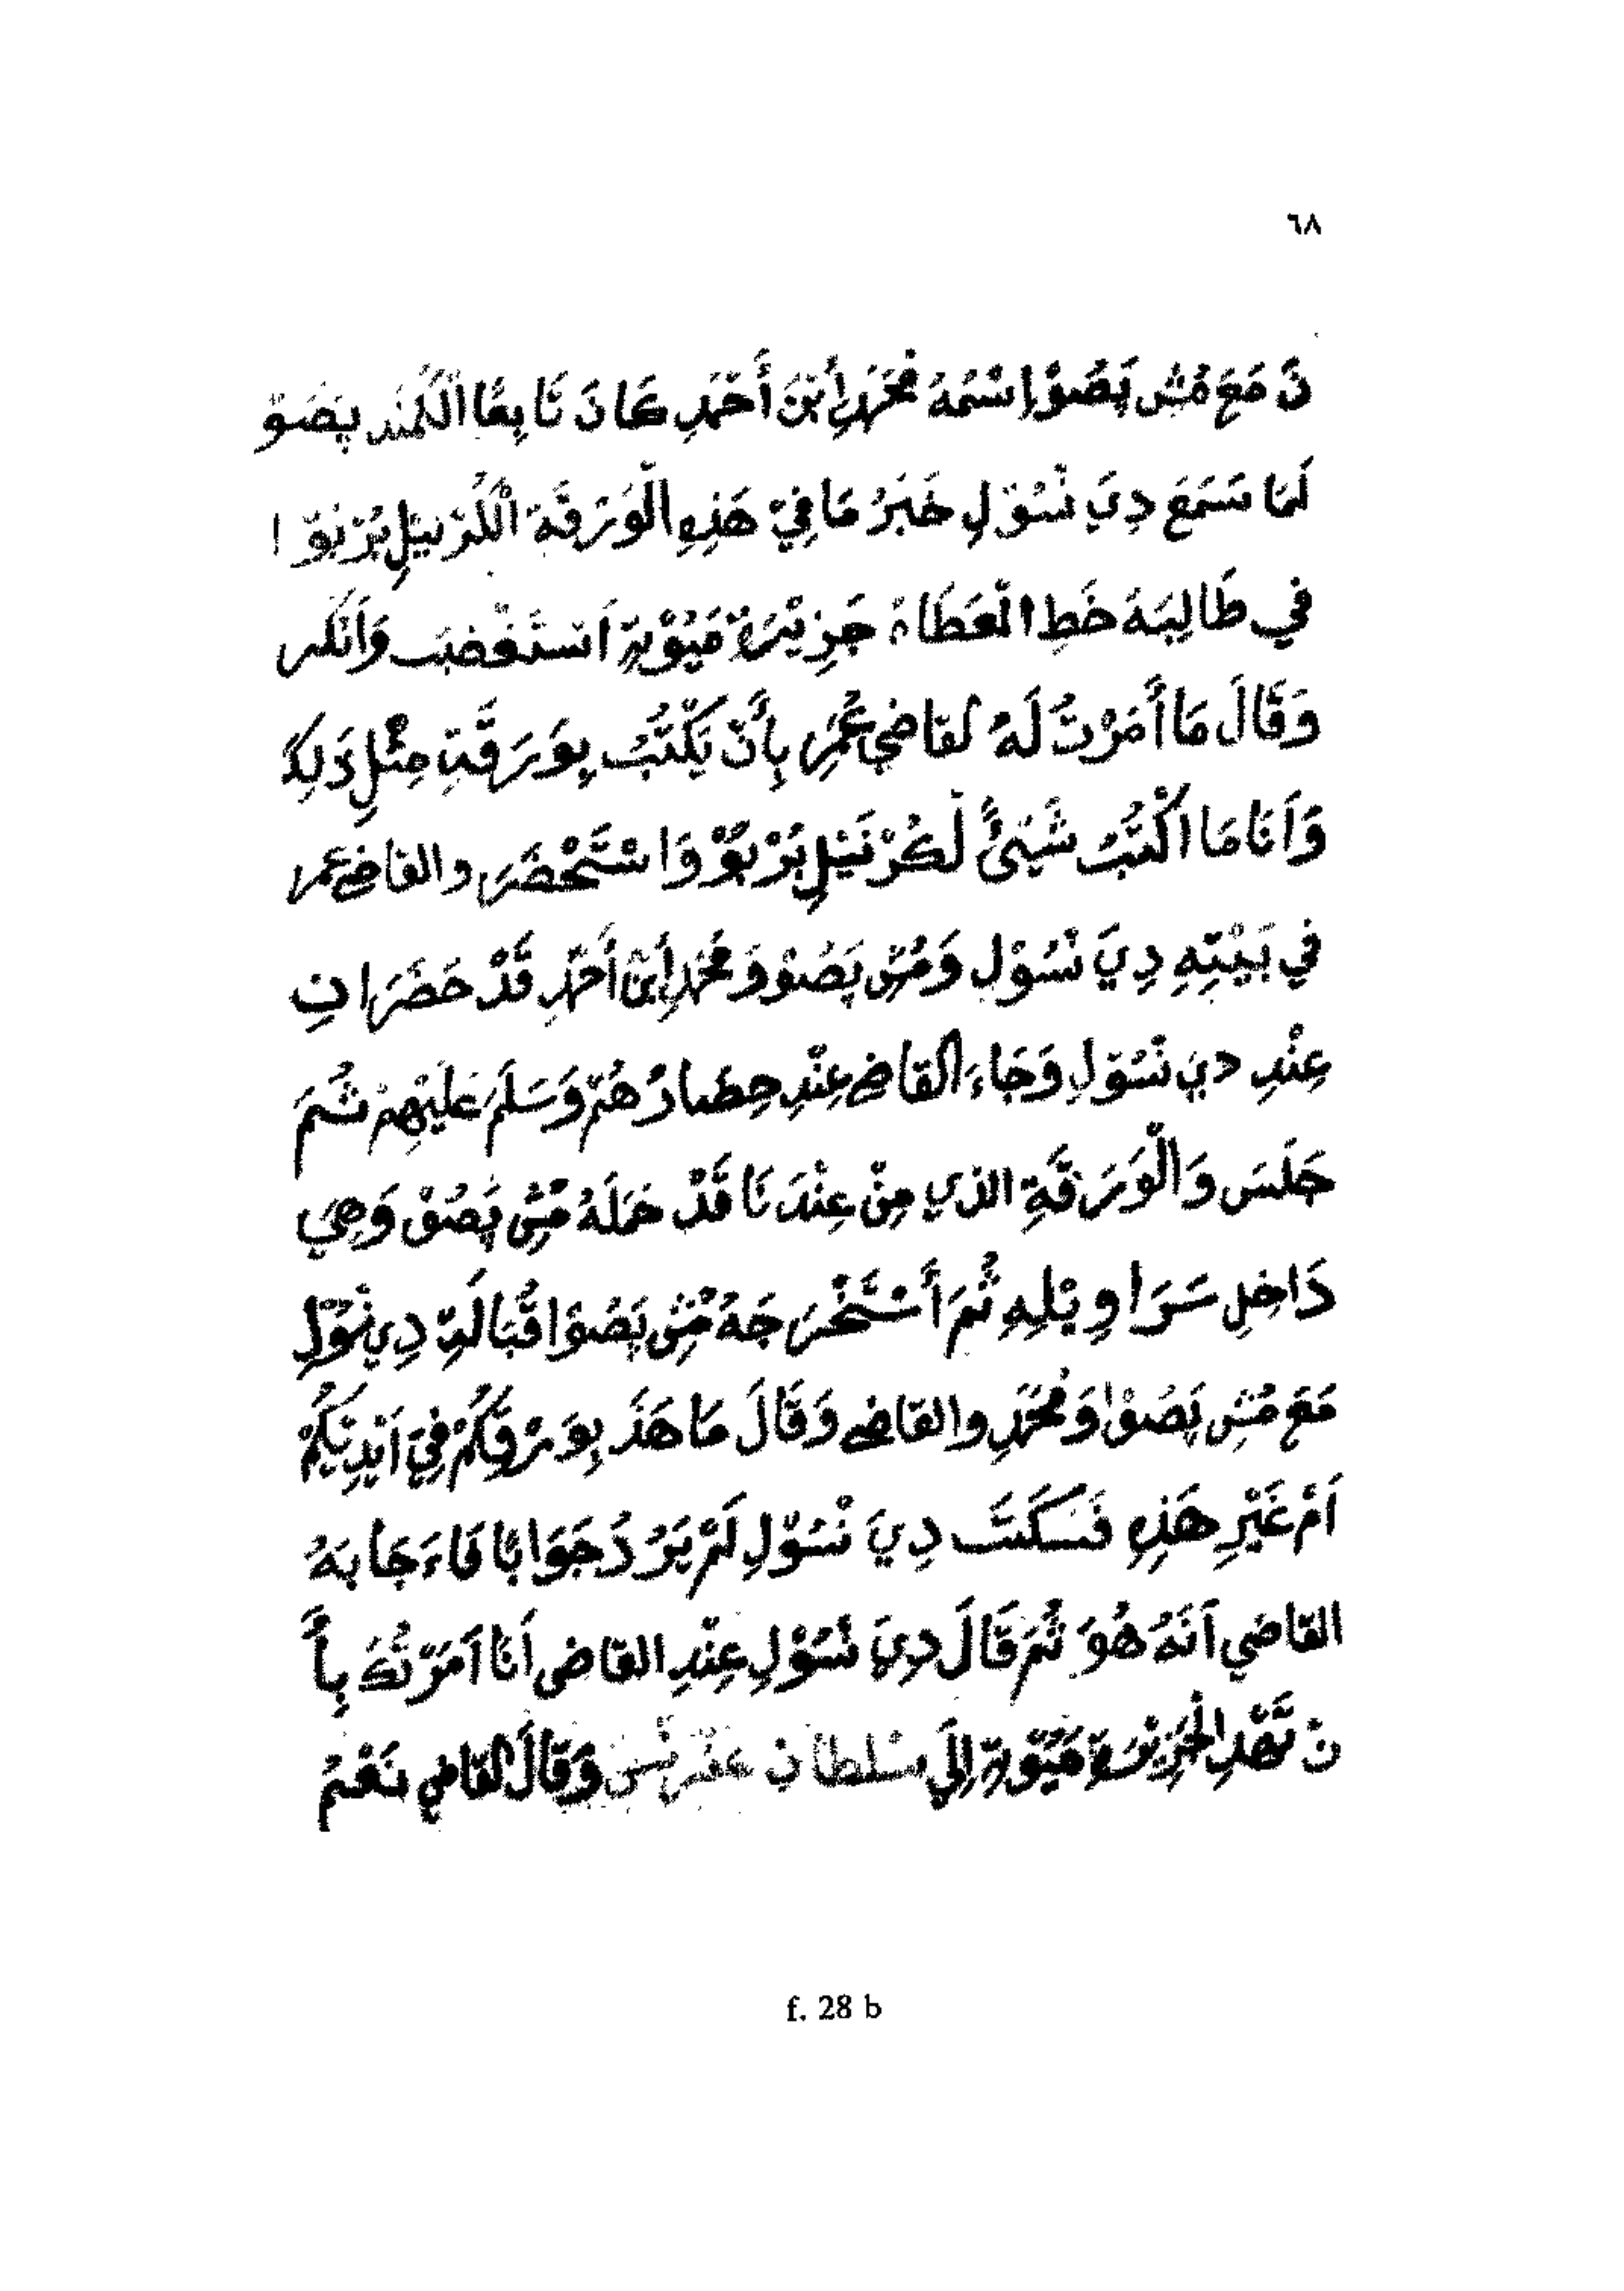 ٦٨
نَ مَعَ مُسْ پَصُوْا اِسْمُهُ مُحَمَّدِ اِبْنِ أَحْمَدِ كَانَ تَابِعًا الْكُمَنْد پَصَوْ
لَمَا سَمَعَ دِيَ نْسُوْلِ خَبَرُ مَا فِيْ هَذِهِ الْوَرَقَةِ الْكُرْنَيْلِ بُرْبُوْا
في طَالِبَهُ خَطِ الْعَطَاهُ جَزِيْرَةُ مَيُوْةِ اَستَغْضَبَ وَاَنْكَر
وَقَالَ مَا أَمَرْتُ لَهُ لقاضي عُمَرِ بِأَنْ يَكْتُبُ بِوَرَقَةِ مِثْلِ ذَلِكَ
وَاَنَا مَا اكْتُبُ شَيْئً لَكُرْنَيْلِ بُرْبُوْ وَاسْتَحْضَرَ والقاضي عمر
في بَيْتِهِ دِيَ نْسُوْلِ وَمُسْ پَصُوْوَ مُحَمَّدِ اِبْنَ أَحْمَدِ قَدْ حَضَرَانِ
عِنْدِ دي نْسُوْلِ وَجَاءَ القاضي عِنْدِ حِضَارُهُمْ وَسَلَمَ عَلَيْهِمْ ثُمَ
جَلَسَ وَالْوَرَقَةِ الذي مِنْ عِنْدَنَا قَدْ حَمَلَهُ مُسْ پَصُوْ وَهِيَ
دَاخِلِ سَرَاوِيْلِهِ ثُمَ أَسْتَخْرَجَهُ مُسْ پَصُوْا قُبَالَةِ دِي نْسُوْلِ
مَعَ مُسْ پَصُوْا وَمُحَمَّدِ والقاضي وَقَالَ مَا هَذَ بِوَرَقَكُمْ فِيْ اَيْدِيْكُمْ
اَمْ غَيْرِ هَذِهِ فَسَكَتَ دِيَ نْسُوْلِ لَمْ يَرُدَ جَوَابًا فَاءَجَابَهُ
القاضي اَنَهُ هُوَ ثُمَ قَالَ دِيَ نْسُوْلِ عِنْدِ القاضي اَنَا اَمَرْتُكَ بِأَ
نْ تَهْدِ الْجَزِيْرَةِ مَيُوْةِ اِلَيَ سُلطان وَقَالَ القاضي نَعْمْ
f. 28 b